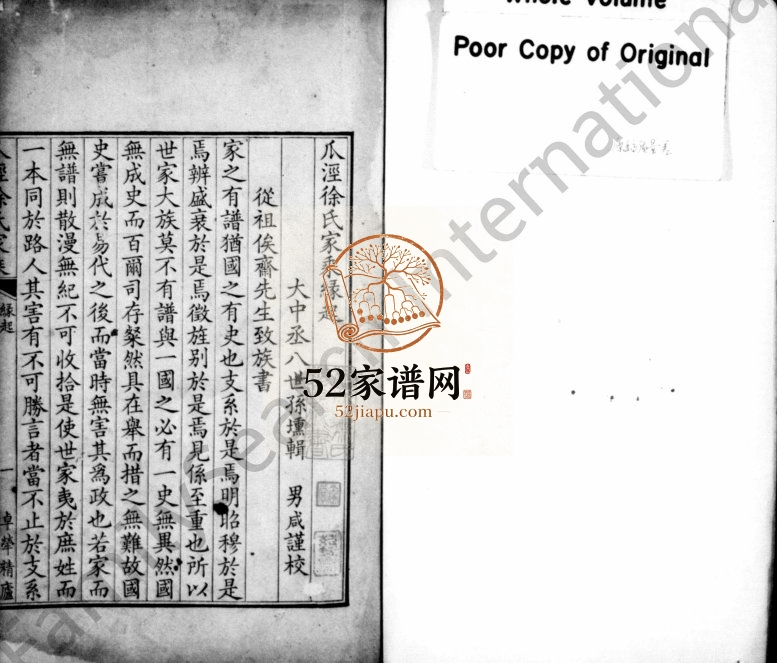 Whole Volume
Poor Copy of Original
瓜涇徐氏家乘緣起
大中丞八世孫壎輯 男咸謹校
從祖俟齋先生致族書
家之有譜猶國之有史也支系於是焉明昭穆於是
焉辨盛衰於是焉徵旌别於是焉見係至重也所以
世家大族莫不有譜與一國之必有一史無異然國
無成史而百爾司存粲然具在舉而措之無難故國
史嘗成於易代之後而當時無害其為政也若家而
無譜則散漫無紀不可收拾是使世家夷於庶姓而
一本同於路人其害有不可勝言者當不止於支系
涇徐氏家乘 緣起 一 卓犖精廬
52家谱网
52jiapu.com
FamilySearch International